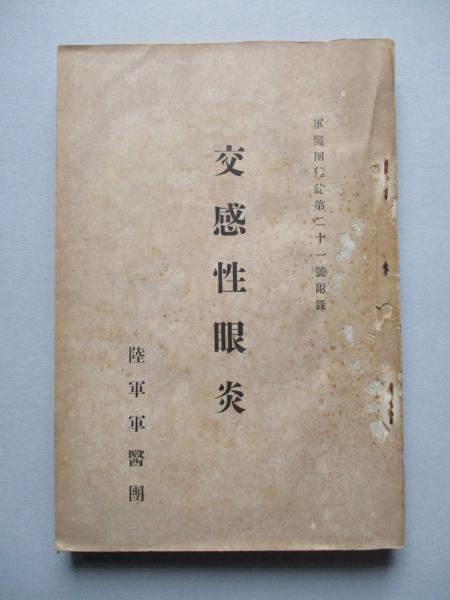 軍醫團雜誌第二十一號附錄
交感性眼炎
陸軍軍醫團